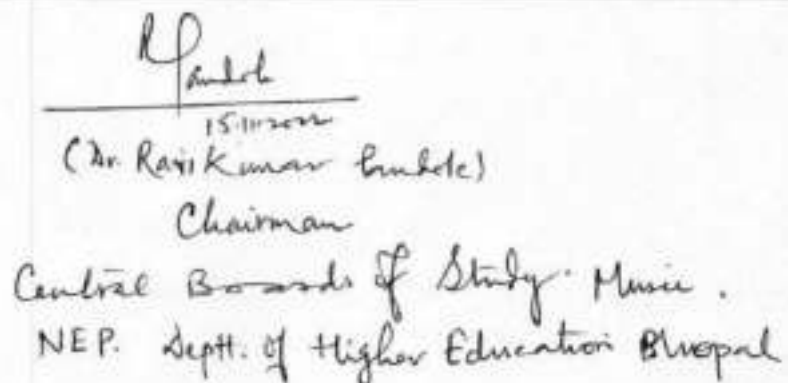 15.11.2022
(Dr. Ravi Kumar
Chairman
Central Boards of Study. Music.
NEP. Deptt. of Higher Education Bhopal